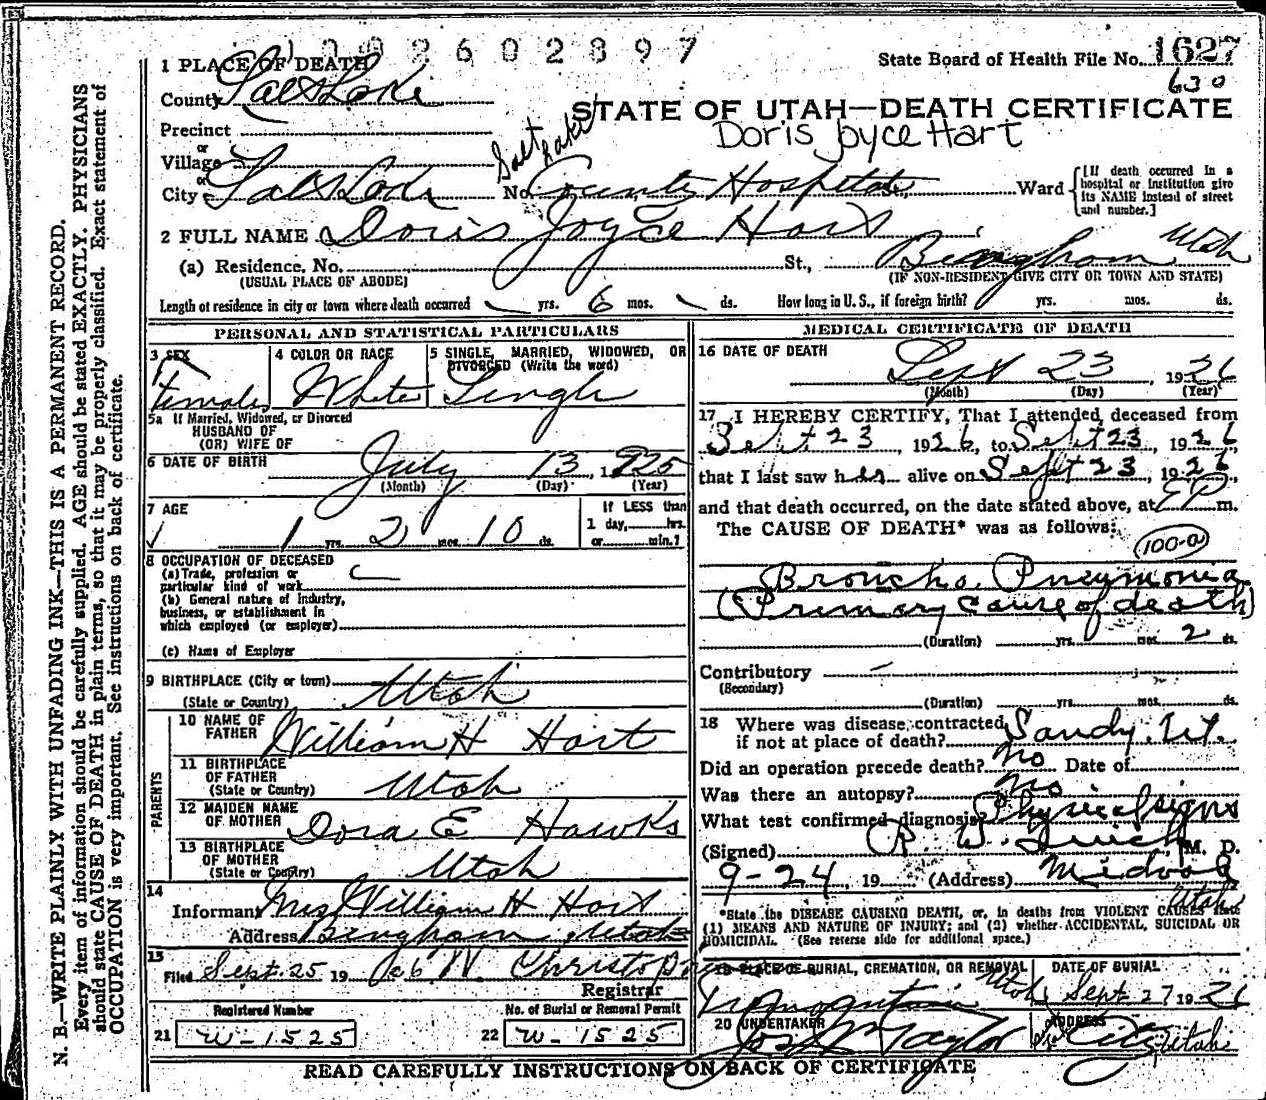 N. B.—WRITE PLAINLY WITH UNFADING INK—THIS IS A PERMANENT RECORD.
Every item of information should be carefully supplied. AGE should be stated EXACTLY. PHYSICIANS
should state CAUSE OF DEATH in plain terms, so that it may be properly classified. Exact statement of
OCCUPATION is very important. See instructions on back of certificate.
002602897
State Board of Health File No. 1627
630
1 PLACE OF DEATH
County Salt Lake
STATE OF UTAH—DEATH CERTIFICATE
Doris Joyce Hart
Precinct
or
Village
or
City Salt Lake No. Salt Lake County Hospital St., Ward
[If death occurred in a
hospital or institution give
its NAME instead of street
and number.]
2 FULL NAME Doris Joyce Hart
(a) Residence, No. St., Bingham Utah
(USUAL PLACE OF ABODE) (IF NON-RESIDENT GIVE CITY OR TOWN AND STATE)
Length of residence in city or town where death occurred yrs. 6 mos. ds. How long in U. S., if foreign birth? yrs. mos. ds.
PERSONAL AND STATISTICAL PARTICULARS
3 SEX
Female
4 COLOR OR RACE
White
5 SINGLE, MARRIED, WIDOWED, OR
DIVORCED (Write the word)
Single
5a If Married, Widowed, or Divorced
HUSBAND OF
(OR) WIFE OF
6 DATE OF BIRTH July 13, 1925
(Month) (Day) (Year)
7 AGE
1 yrs. 2 mos. 10 ds.
If LESS than
1 day, hrs.
or min.?
8 OCCUPATION OF DECEASED
(a) Trade, profession or
particular kind of work
(b) General nature of industry,
business, or establishment in
which employed (or employer)
(c) Name of Employer
9 BIRTHPLACE (City or town)
(State or Country) Utah
PARENTS
10 NAME OF
FATHER William H Hart
11 BIRTHPLACE
OF FATHER
(State or Country) Utah
12 MAIDEN NAME
OF MOTHER Dora E Hawks
13 BIRTHPLACE
OF MOTHER
(State or Country) Utah
14
Informant Mrs William H Hart
Address Bingham, Utah
15
Filed Sept. 25 19
Registrar
Registered Number
21 W-1525
No. of Burial or Removal Permit
22 W-1525
MEDICAL CERTIFICATE OF DEATH
16 DATE OF DEATH
Sept 23, 1926
(Month) (Day) (Year)
17 I HEREBY CERTIFY, That I attended deceased from
Sept 23, 1926, to Sept 23, 1926
that I last saw her alive on Sept 23, 1926,
and that death occurred, on the date stated above, at P m.
The CAUSE OF DEATH* was as follows:
100-a
Broncho Pneumonia
(Primary cause of death)
(Duration) yrs. mos. 2 ds.
Contributory
(Secondary)
(Duration) yrs. mos. ds.
18 Where was disease contracted
if not at place of death? Sandy, Ut.
Did an operation precede death? no Date of
Was there an autopsy? no
What test confirmed diagnosis? Physical signs
(Signed) R. W. M. D.
9-24, 19 (Address) Midvale
Utah
*State the DISEASE CAUSING DEATH, or, in deaths from VIOLENT CAUSES state
(1) MEANS AND NATURE OF INJURY; and (2) whether ACCIDENTAL, SUICIDAL OR
HOMICIDAL. (See reverse side for additional space.)
19 PLACE OF BURIAL, CREMATION, OR REMOVAL
Utah
DATE OF BURIAL
Sept 27 1926
20 UNDERTAKER
Taylor
ADDRESS
City Utah
READ CAREFULLY INSTRUCTIONS ON BACK OF CERTIFICATE